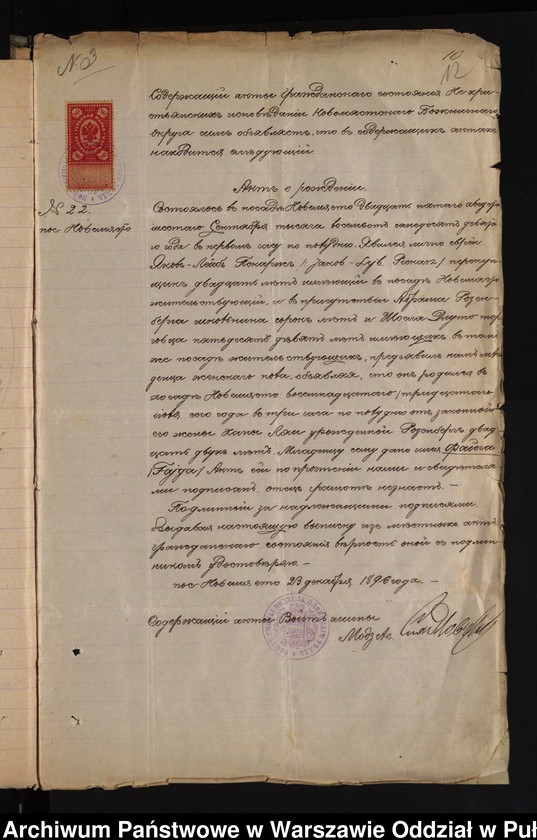 №3
10
12
Содержащій акты гражданскаго состоянія Не хри-
стіанскихъ исповѣданій Новомястскаго Божничнаго
округа симъ объявляетъ, что въ содержащихъ актахъ
находится слѣдующій:
Актъ о рожденіи.
№ 22.
пос. Новемясто
Состоялось въ посадѣ Новемясто двадцать пятаго августа
шестаго Сентября тысяча восемьсотъ семдесятъ девята-
го года въ первомъ часу по полудню. Явился лично еврей
Яковъ-Лейбъ Покаржъ /Jakob-Lyb Pokarz/
двадцати лѣтъ имѣющій въ посадѣ Новемясто
жительствующій, и въ присутствіи Абрама Розен-
берга школьника сорокъ лѣтъ и
пятидесятъ девять лѣтъ имѣющихъ въ томъ
же посадѣ жительствующихъ, предъявилъ намъ мла-
денца женскаго пола, объявляя, что онъ родился въ
посадѣ Новемясто восемнадцатаго/тридцатаго
Іюля, сего года въ три часа по полудню отъ законной
его жены Ханы Леи урожденной Розенбергъ двад-
цать двухъ лѣтъ. Младенцу сему дано имя Файга
/Fajga/ Актъ сей по прочтеніи нами и свидѣтеля-
ми подписанъ, отецъ грамотѣ незнаетъ. —
Подлинный за надлежащими подписями.
Выдавая настоящую выписку изъ мѣстныхъ актъ
гражданскаго состоянія вѣрность оной съ подлин-
никомъ удостовѣряю. —
пос. Новемясто 23 декабря 1896 года. —
Содержащій акты Войтъ гмины
Archiwum Państwowe w Warszawie Oddział w Puł